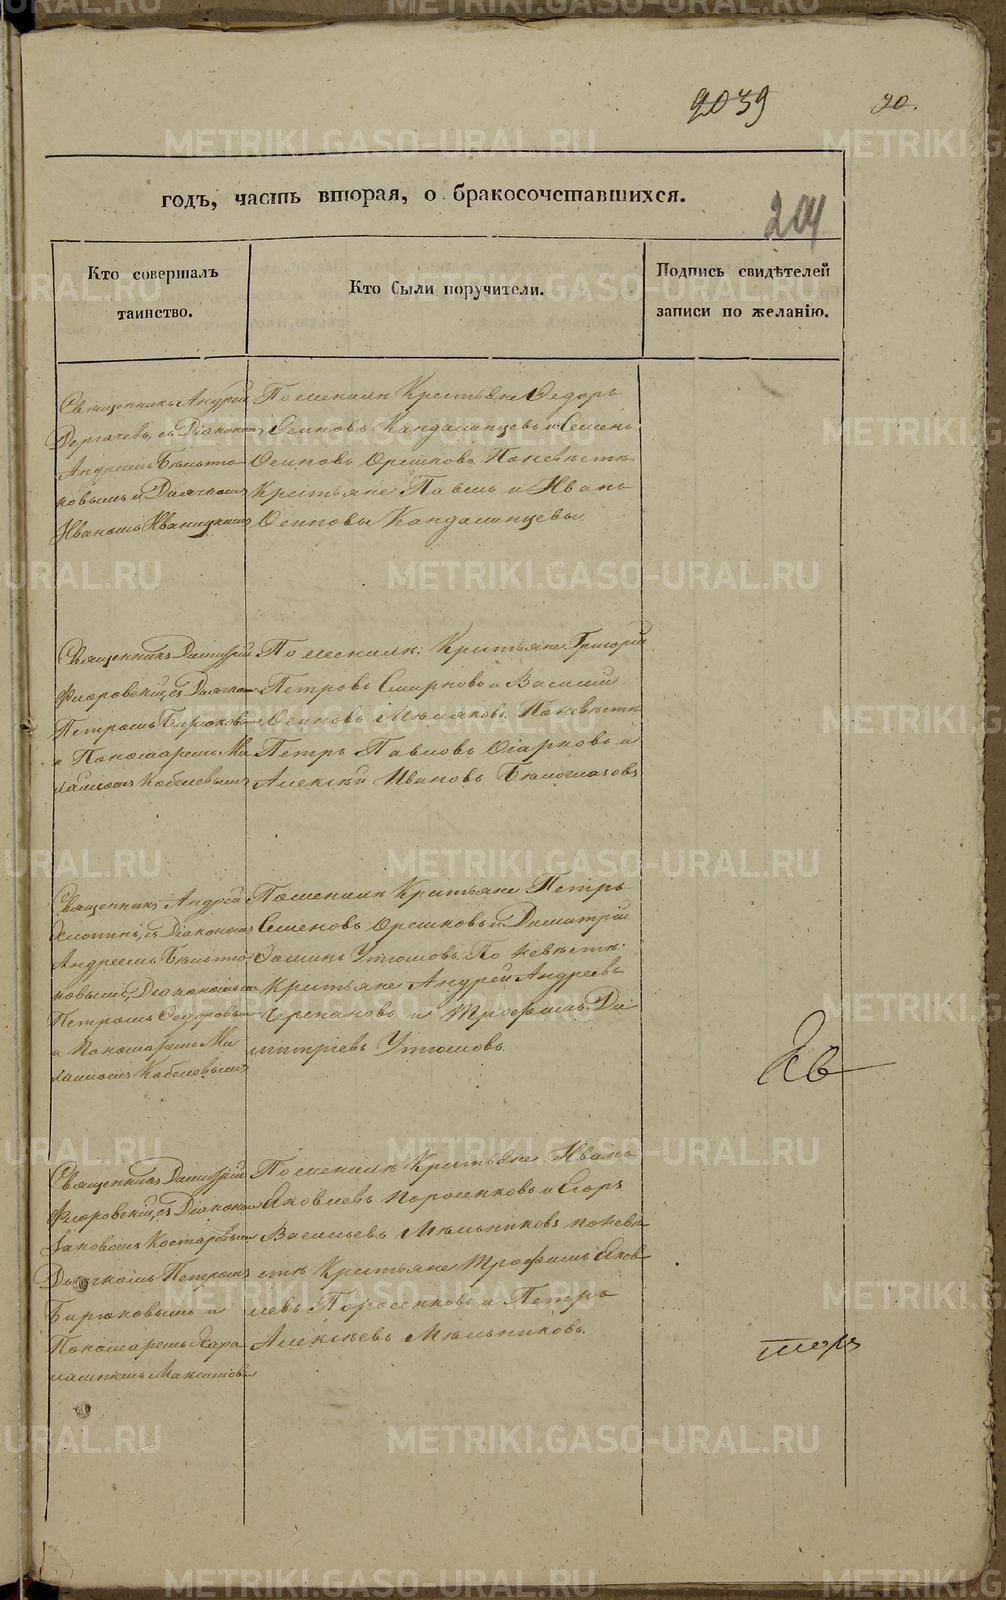 2039
20.
годъ, часть вторая, о бракосочетавшихся.
204
Кто совершалъ
таинство.
Кто были поручители.
Подпись свидѣтелей
записи по желанію.
Священникъ Андрей
Дергачевъ, съ Діакономъ
Андреемъ
и Дьячкомъ
Иваномъ Иваницкимъ
По женихѣ Крестьяне Ѳедоръ
Осиповъ Кандалинцевъ и Семенъ
Осиповъ Орешковъ. По невѣстѣ
Крестьяне Павелъ и Иванъ
Осиповы Кандалинцевы
Священникъ Димитрій
Флоровскій, съ Дьячкомъ
Петромъ Бирюковымъ
и Пономаремъ Ми
хаиломъ Кобелевымъ
По женихѣ: Крестьяне Григорій
Петровъ Смирновъ и Василій
Осиповъ По невѣстѣ
Петръ Павловъ и
Алексѣй Ивановъ Бѣлоглазовъ
Священникъ Андрей
съ Діакономъ
Андреемъ
ковымъ, Діакономъ
Петромъ Ѳедоровымъ
и Пономаремъ Ми
хаиломъ Кобелевымъ
По женихѣ Крестьяне Петръ
Семеновъ Орешковъ и Димитрій
Ѳоминъ Утюмовъ. По невѣстѣ:
Крестьяне Андрей Андреевъ
Черепановъ и Трофимъ Ди
митріевъ Утюмовъ.
Священникъ Димитрій
Флоровскій, съ Діакономъ
Іаковомъ Костаревымъ
Дьячкомъ Петромъ
Бирюковымъ и
Пономаремъ Хара
лампіемъ Максимовымъ
По женихѣ Крестьяне Иванъ
Яковлевъ Поросенковъ и Егоръ
Васильевъ Мѣльниковъ по невѣ
стѣ Крестьяне Трофимъ Яков
левъ Поросенковъ и Петръ
Алексѣевъ Мѣльниковъ.
METRIKI.GASO-URAL.RU